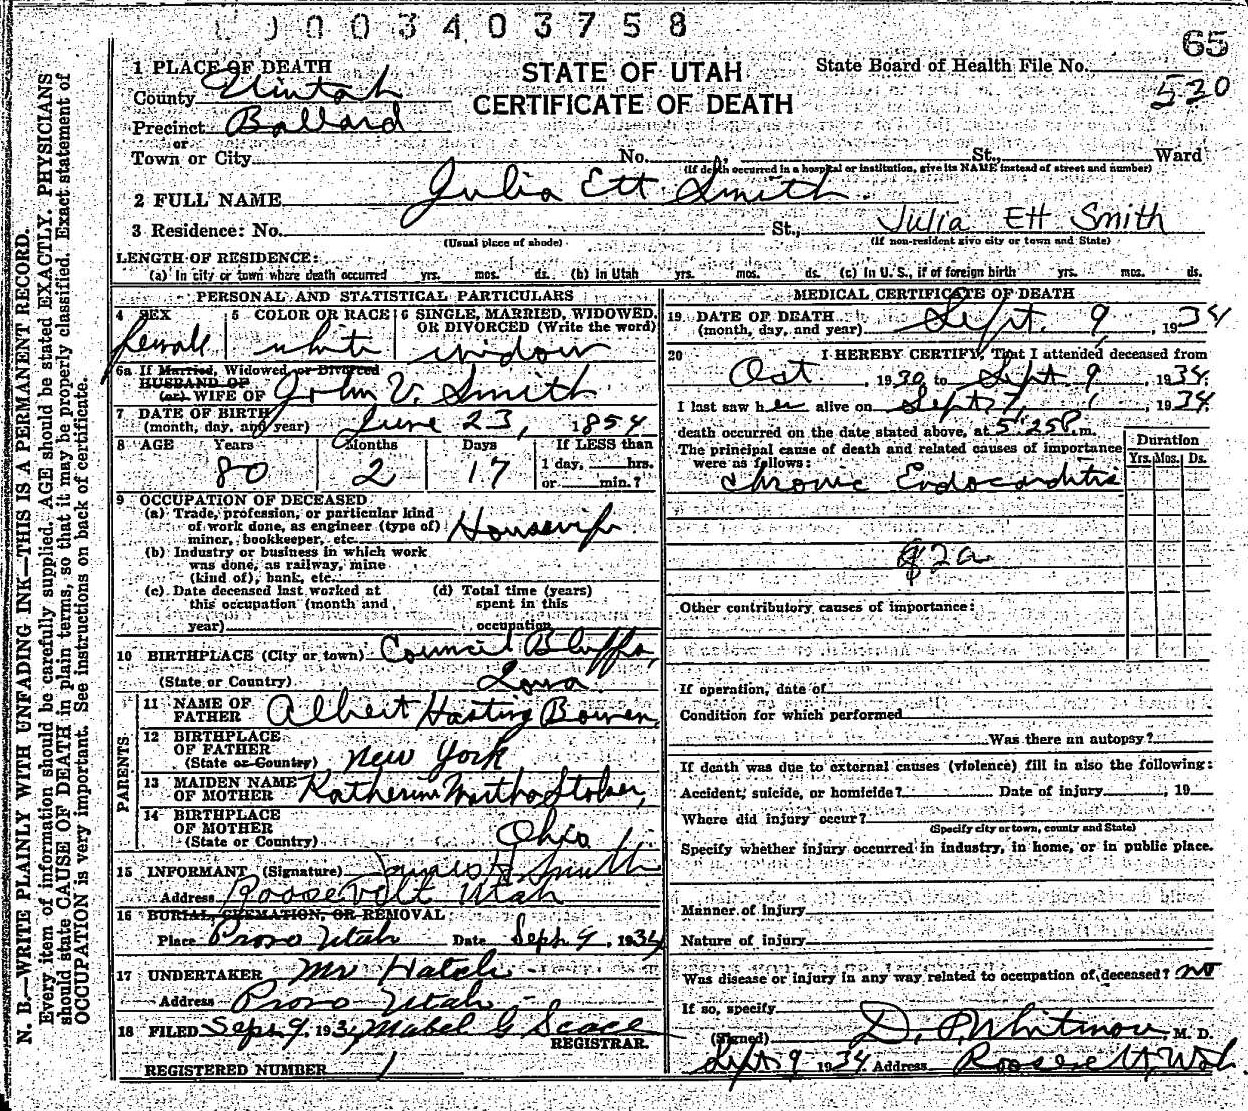 0003403758
65
1 PLACE OF DEATH
STATE OF UTAH
State Board of Health File No.
County Uintah
CERTIFICATE OF DEATH
520
Precinct Ballard
or
Town or City No. , St., Ward
(If death occurred in a hospital or institution, give its NAME instead of street and number)
2 FULL NAME Julia Ett Smith.
3 Residence: No. St., Julia Ett Smith
(Usual place of abode) (If non-resident give city or town and State)
LENGTH OF RESIDENCE:
(a) In city or town where death occurred yrs. mos. ds. (b) In Utah yrs. mos. ds. (c) In U. S., if of foreign birth yrs. mos. ds.
PERSONAL AND STATISTICAL PARTICULARS
4 SEX 5 COLOR OR RACE 6 SINGLE, MARRIED, WIDOWED, OR DIVORCED (Write the word)
female white widow
6a If Married, Widowed, or Divorced
HUSBAND OF
(or) WIFE OF John V. Smith
7 DATE OF BIRTH
(month, day, and year) June 23, 1854
8 AGE Years Months Days If LESS than
80 2 17 1 day, hrs.
or min.?
9 OCCUPATION OF DECEASED
(a) Trade, profession, or particular kind
of work done, as engineer (type of)
miner, bookkeeper, etc. Housewife
(b) Industry or business in which work
was done, as railway, mine
(kind of), bank, etc.
(c) Date deceased last worked at
this occupation (month and
year)
(d) Total time (years)
spent in this
occupation
10 BIRTHPLACE (City or town) Council Bluffs,
(State or Country) Iowa
PARENTS
11 NAME OF
FATHER Albert Hasting Bowen,
12 BIRTHPLACE
OF FATHER
(State or Country) New York
13 MAIDEN NAME
OF MOTHER Katherine Martha Stoker,
14 BIRTHPLACE
OF MOTHER
(State or Country) Ohio
15 INFORMANT (Signature) James H Smith
Address Roosevelt Utah
16 BURIAL, CREMATION, OR REMOVAL
Place Provo Utah Date Sept 9, 1934
17 UNDERTAKER Mr Hatch
Address Provo Utah
18 FILED Sept 9, 1934 Mabel G
REGISTRAR.
REGISTERED NUMBER 1
MEDICAL CERTIFICATE OF DEATH
19 DATE OF DEATH
(month, day, and year) Sept. 9, 1934
20 I HEREBY CERTIFY, That I attended deceased from
Oct. 1930, to Sept 9, 1934.
I last saw her alive on Sept 7, 1934.
death occurred on the date stated above, at 5:25P.m.
The principal cause of death and related causes of importance
were as follows:
Duration
Yrs. Mos. Ds.
Chronic Endocarditis
92a
Other contributory causes of importance:
If operation, date of
Condition for which performed
Was there an autopsy?
If death was due to external causes (violence) fill in also the following:
Accident, suicide, or homicide? Date of injury , 19
Where did injury occur?
(Specify city or town, county and State)
Specify whether injury occurred in industry, in home, or in public place.
Manner of injury
Nature of injury
Was disease or injury in any way related to occupation of deceased? no
If so, specify
(Signed) D. P. Whitmore, M. D.
Sept 9 1934. Address Roosevelt, Utah.
N. B.—WRITE PLAINLY WITH UNFADING INK—THIS IS A PERMANENT RECORD.
Every item of information should be carefully supplied. AGE should be stated EXACTLY. PHYSICIANS
should state CAUSE OF DEATH in plain terms, so that it may be properly classified. Exact statement of
OCCUPATION is very important. See instructions on back of certificate.